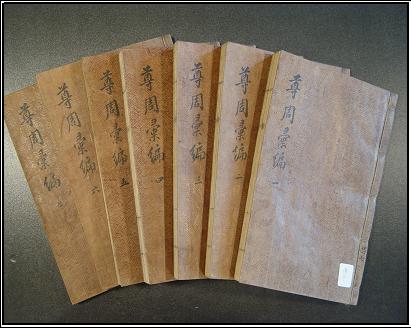 尊周彙編 一
尊周彙編 二
尊周彙編 三
尊周彙編 四
尊周彙編 五
尊周彙編 六
尊周彙編 七